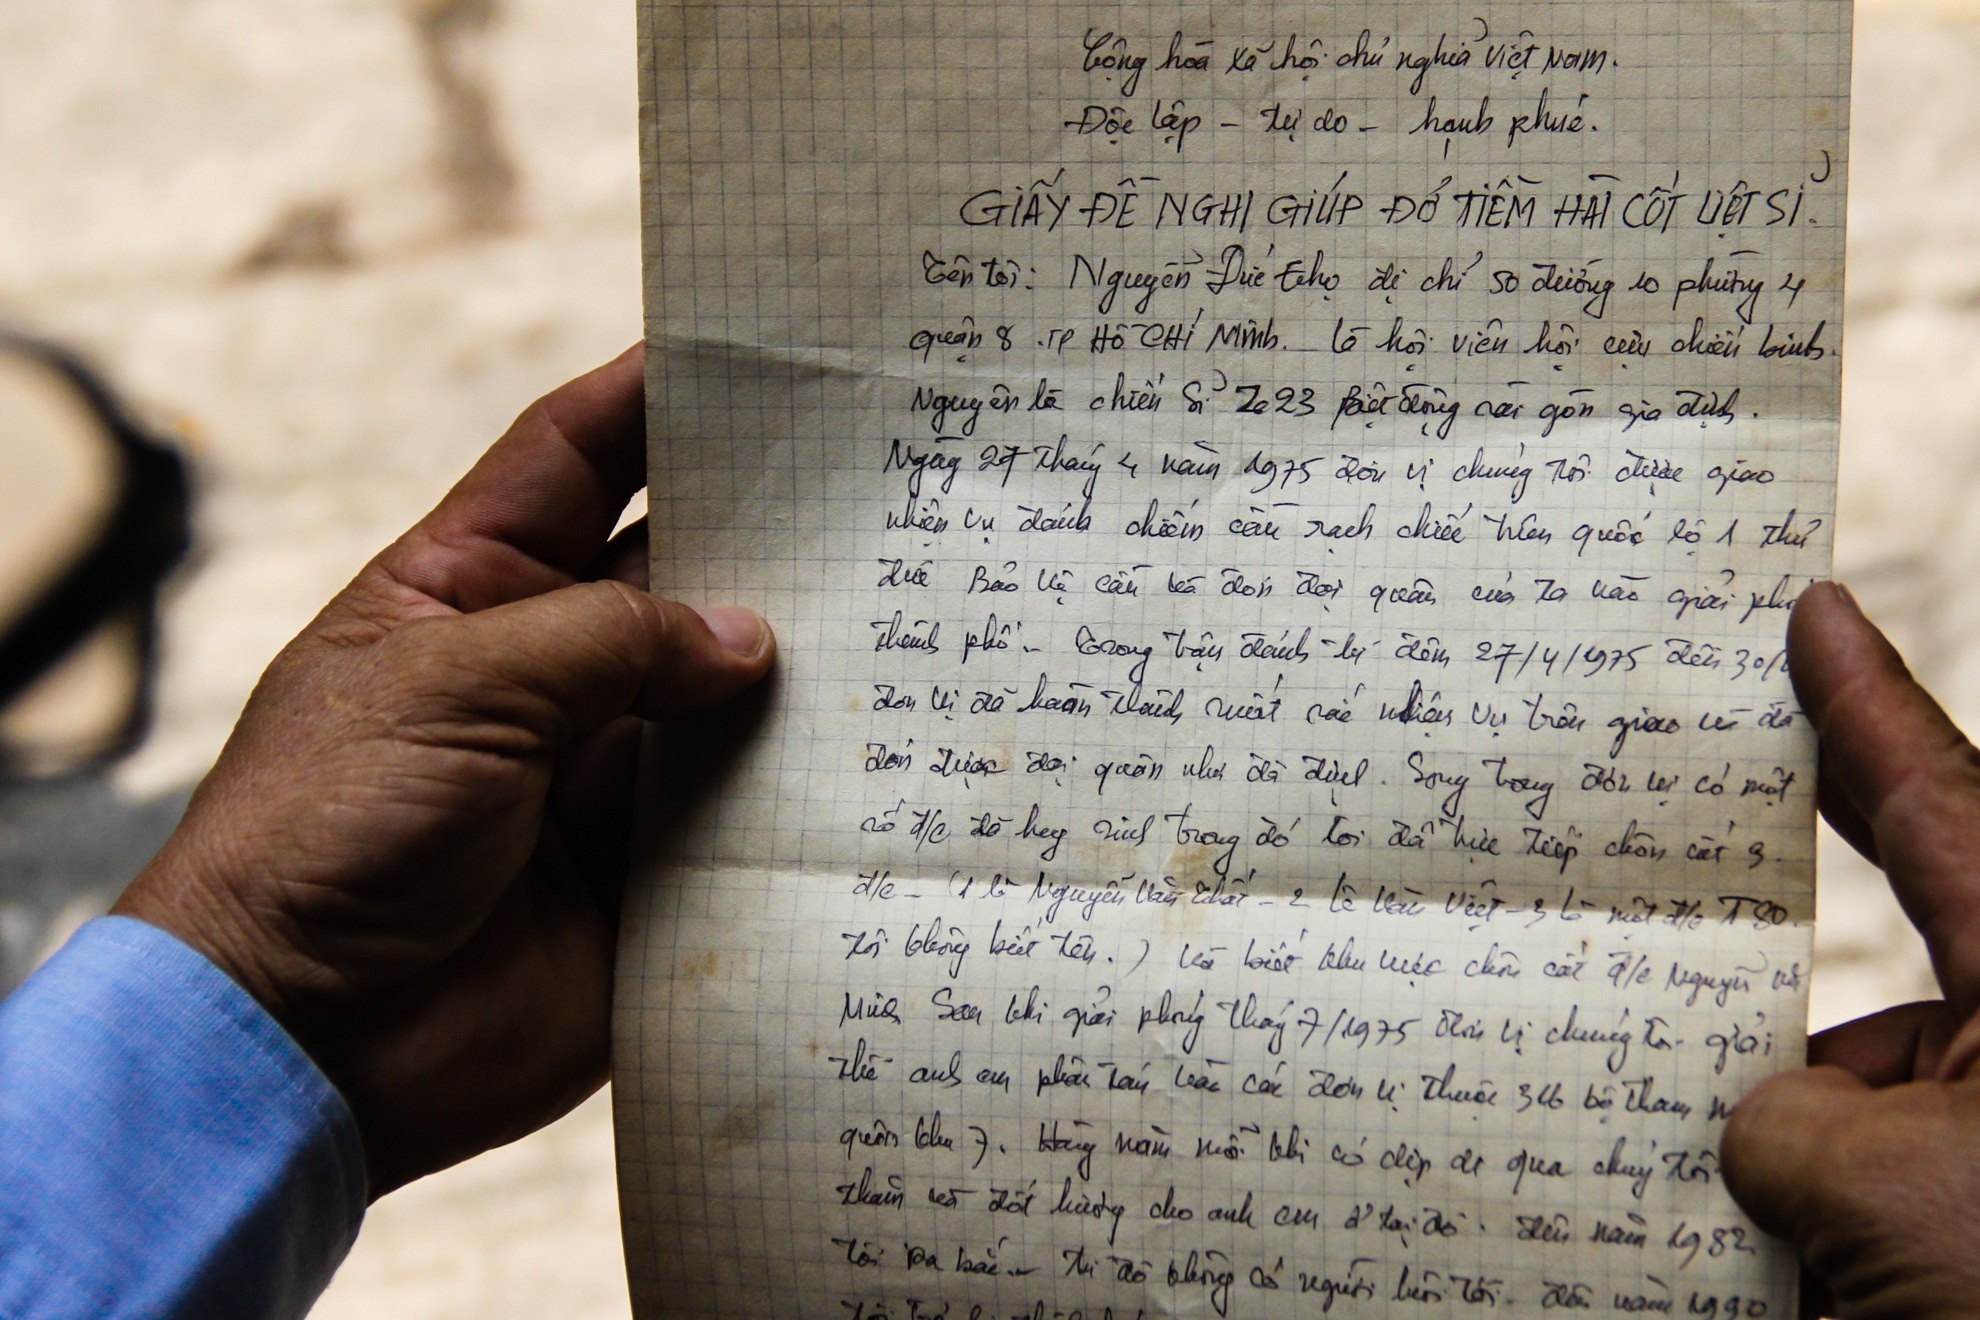 Cộng hòa xã hội chủ nghĩa Việt Nam.
Độc lập - tự do - hạnh phúc.
GIẤY ĐỀ NGHỊ GIÚP ĐỞ TIỀM HÀI CỐT LIỆT SỈ.
Tên tôi: Nguyễn Đức Thọ địa chỉ 50 đường 10 phường 4
quận 8 .TP HỒ CHÍ Minh. là hội viên hội cựu chiến binh.
Nguyên là chiến sỉ Z23 Biệt động sài gòn gia định.
Ngày 27 tháng 4 năm 1975 đơn vị chúng tôi được giao
nhiệm vụ đánh chiếm cầu rạch chiếc trên quốc lộ 1 thủ
đức Bảo vệ cầu và đón đại quân của ta vào giải
thành phố.- Trong trận đánh từ đêm 27/4/1975 đến
đơn vị đã hoàn thành suất sắc nhiệm vụ trên giao và đã
đón được đại quân như đã định. Song trong đơn vị có một
số đ/c đã hy sinh trong đó tôi đã trực tiếp chôn cất 3.
đ/c - (1 là Nguyễn Văn Thất - 2 lê Văn Việt - 3 là một đ/c T80.
tôi không biết tên.) và biết khu vực chôn cất đ/c Nguyễn
Sau khi giải phóng tháng 7/1975 đơn vị chúng tôi giải
thể anh em phân tán vào các đơn vị thuộc 316 bộ tham
quân khu 7. Hàng năm mỗi khi có dịp đi qua chúng tôi
thăm và đốt hương cho anh em ở tại đó. đến năm 1982
tôi ra bắc.- từ đó không có người hỏi tới. đến năm 1990